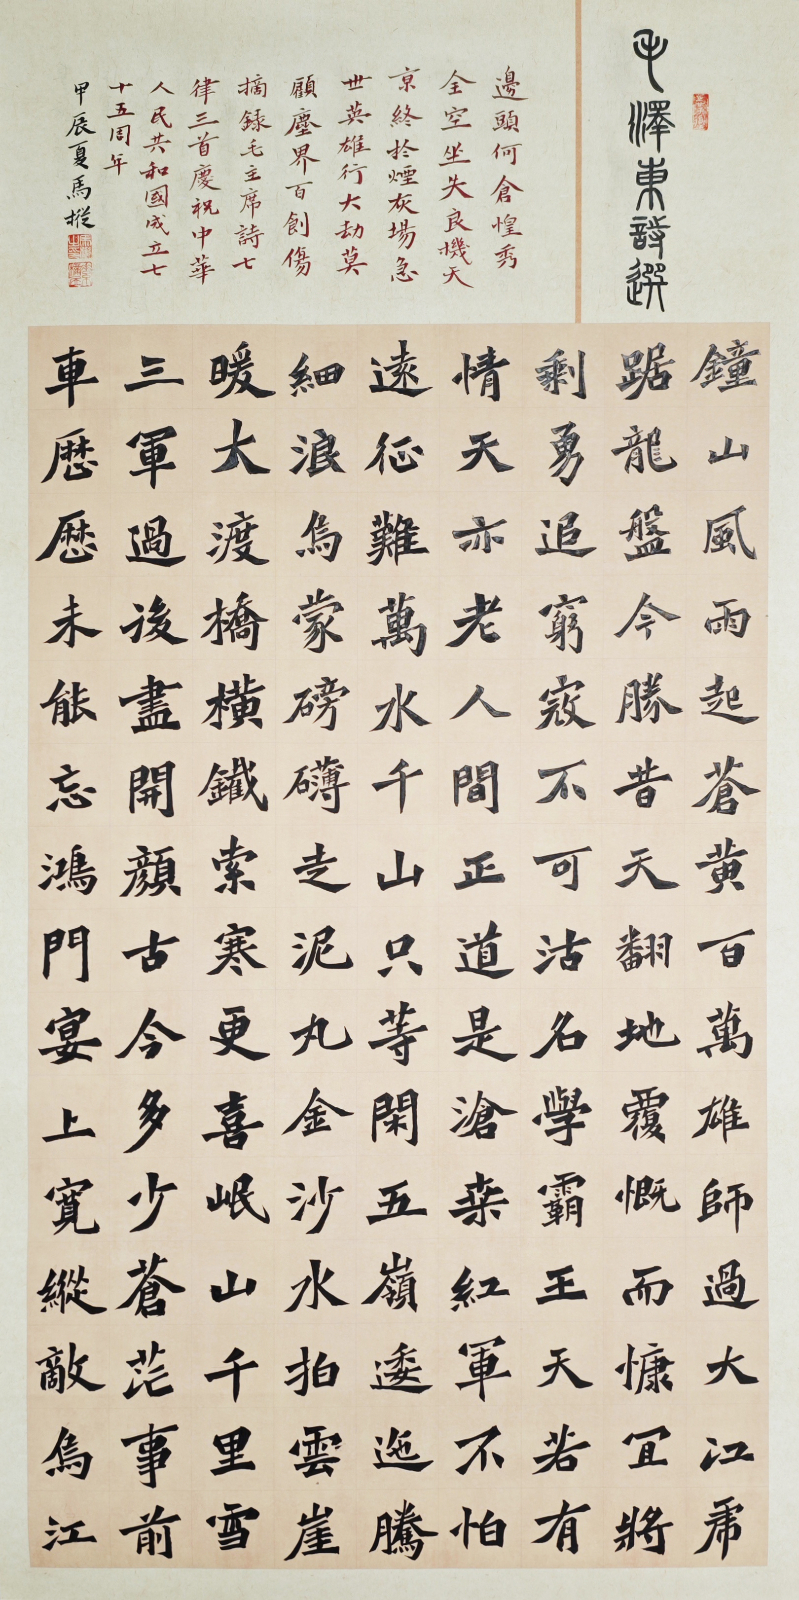 毛澤東詩選
鐘山風雨起蒼黄百萬雄師過大江虎
踞龍盤今勝昔天翻地覆慨而慷宜將
剩勇追窮寇不可沽名學霸王天若有
情天亦老人間正道是滄桒紅軍不怕
遠征難萬水千山只等閑五嶺逶迤騰
細浪烏蒙磅礴走泥丸金沙水拍雲崖
暖大渡橋橫鐵索寒更喜岷山千里雪
三軍過後盡開顏古今多少蒼茫事前
車歷歷未能忘鴻門宴上寬縱敵烏江
邊頭何倉惶秀
全空坐失良機天
京終於煙灰場急
世英雄行大劫莫
顧塵界百創傷
摘録毛主席詩七
律三首慶祝中華
人民共和國成立七
十五周年
甲辰夏馬